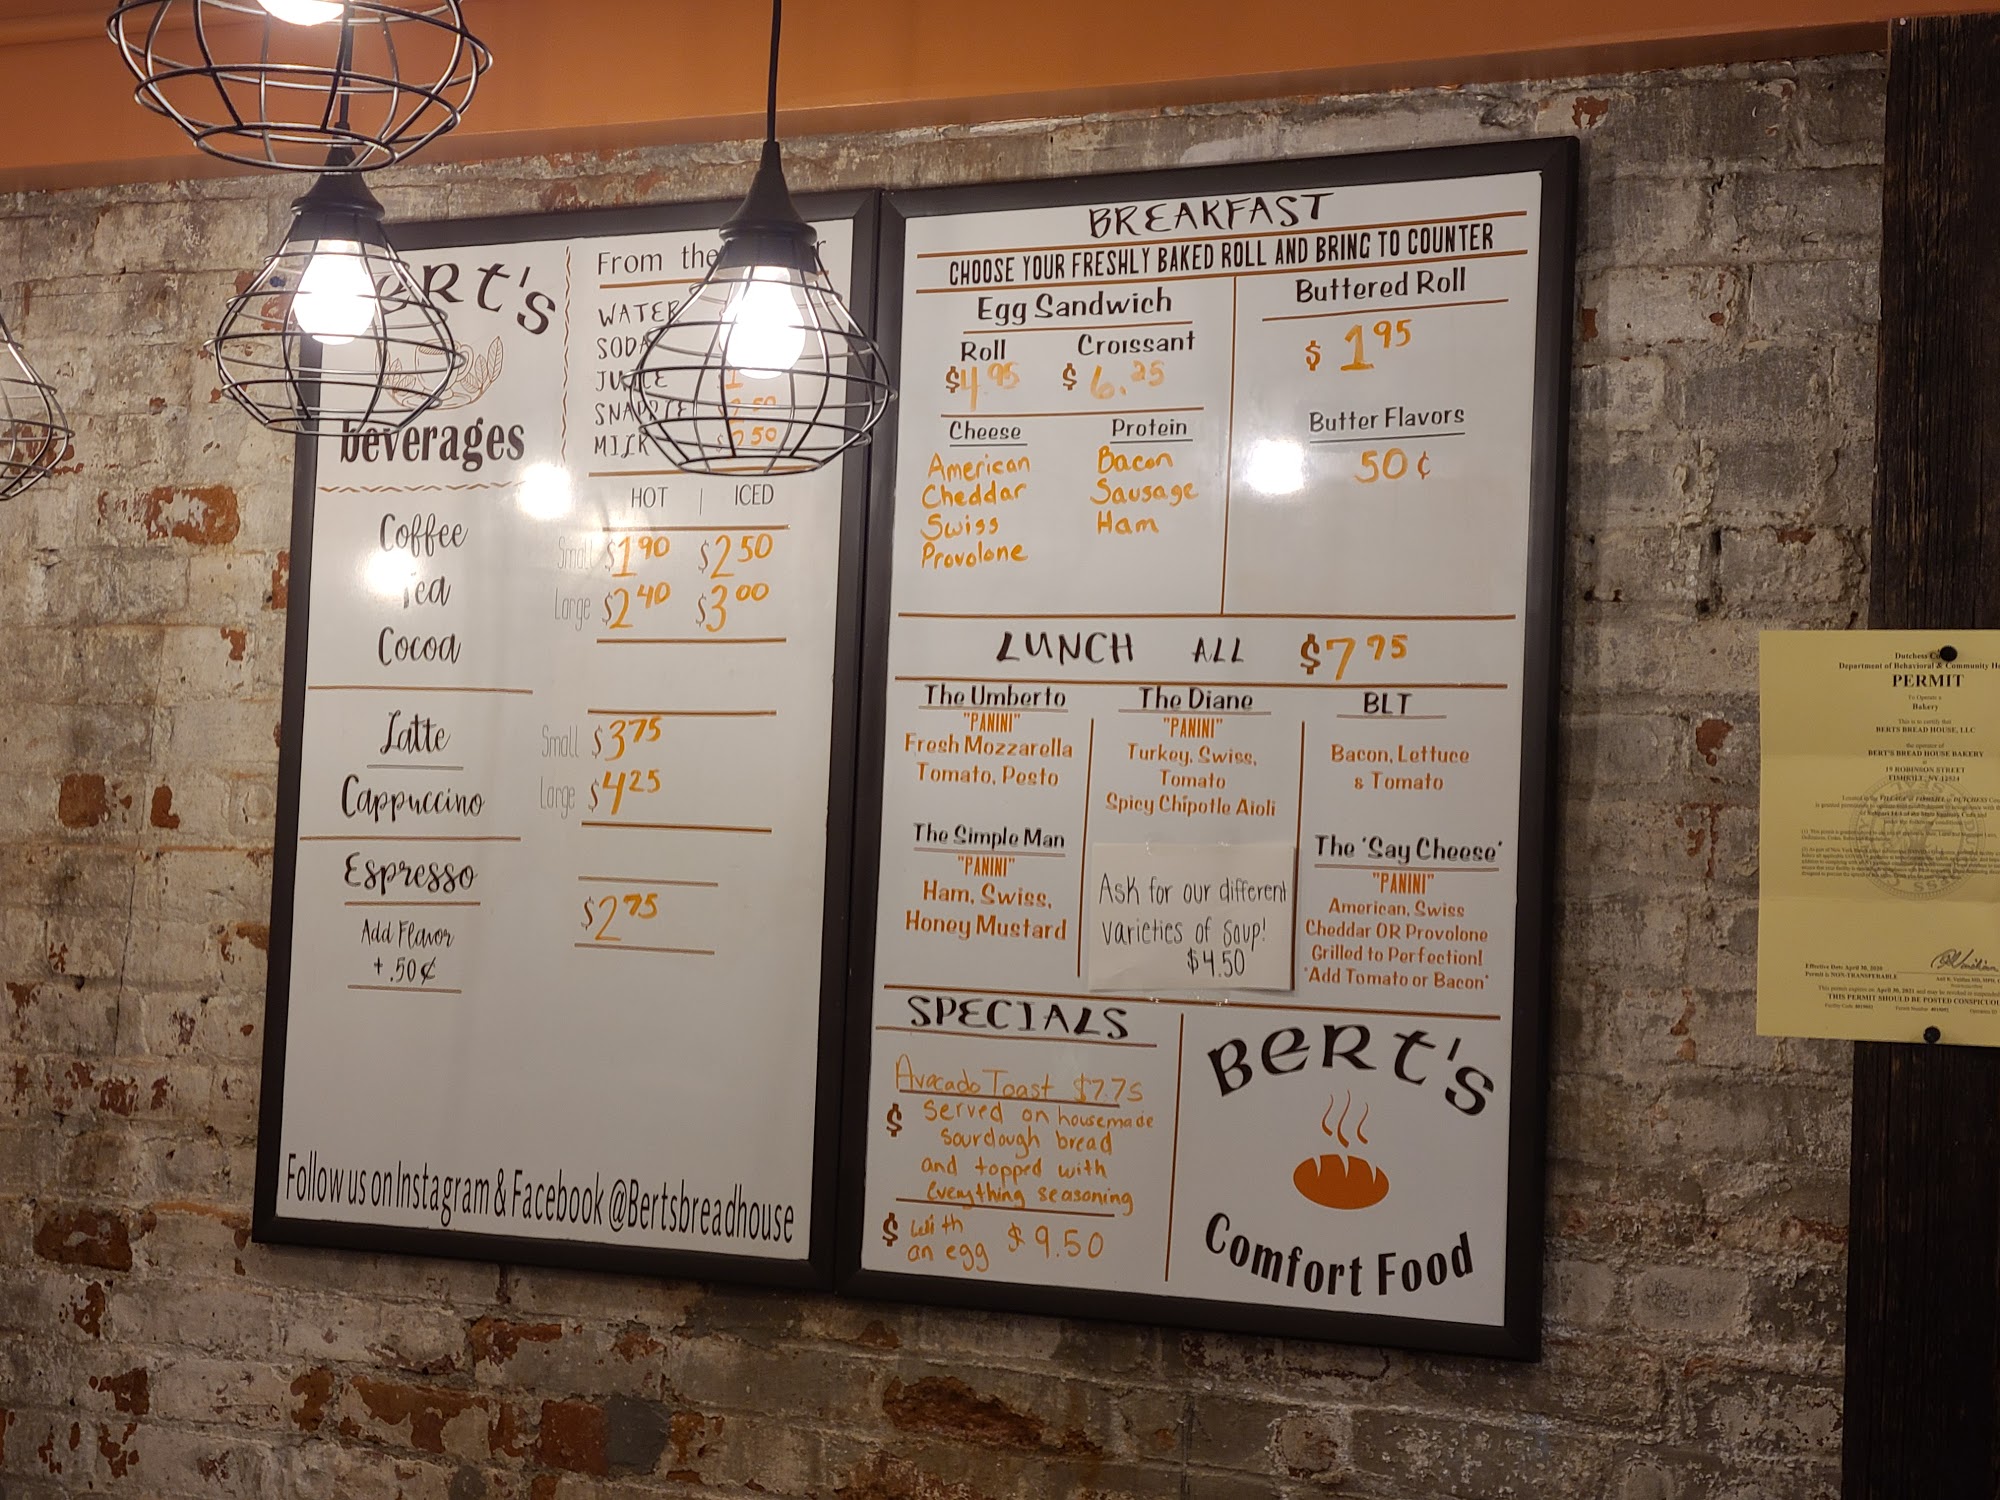 BERT'S
beverages
From the
WATER
SODA
JUICE
SNAPPLE
MILK $2.50
HOT | ICED
Coffee
Tea
Cocoa
Small $1.90 $2.50
Large $2.40 $3.00
Latte
Cappuccino
Small $3.75
Large $4.25
Espresso
$2.75
Add Flavor
+ .50¢
Follow us on Instagram & Facebook @Bertsbreadhouse
BREAKFAST
CHOOSE YOUR FRESHLY BAKED ROLL AND BRING TO COUNTER
Egg Sandwich
Roll Croissant
$4.95 $6.25
Cheese
American
Cheddar
Swiss
Provolone
Protein
Bacon
Sausage
Ham
Buttered Roll
$1.95
Butter Flavors
50¢
LUNCH ALL $7.75
The Umberto
"PANINI"
Fresh Mozzarella
Tomato, Pesto
The Diane
"PANINI"
Turkey, Swiss,
Tomato
Spicy Chipotle Aioli
BLT
Bacon, Lettuce
& Tomato
The Simple Man
"PANINI"
Ham, Swiss,
Honey Mustard
Ask for our different
varieties of soup!
$4.50
The 'Say Cheese'
"PANINI"
American, Swiss
Cheddar OR Provolone
Grilled to Perfection!
*Add Tomato or Bacon*
SPECIALS
Avocado Toast $7.75
$ served on housemade
sourdough bread
and topped with
everything seasoning
$ with
an egg $9.50
BERT'S
Comfort Food
Department of Behavioral & Community
PERMIT
To Operate a
Bakery
This is to certify that
BERTS BREAD HOUSE, LLC
the operator of
BERT'S BREAD HOUSE BAKERY
at
19 ROBINSON STREET
FISHKILL, NY 12524
Effective Date April 30, 2020
Permit is NON-TRANSFERABLE
THIS PERMIT SHOULD BE POSTED